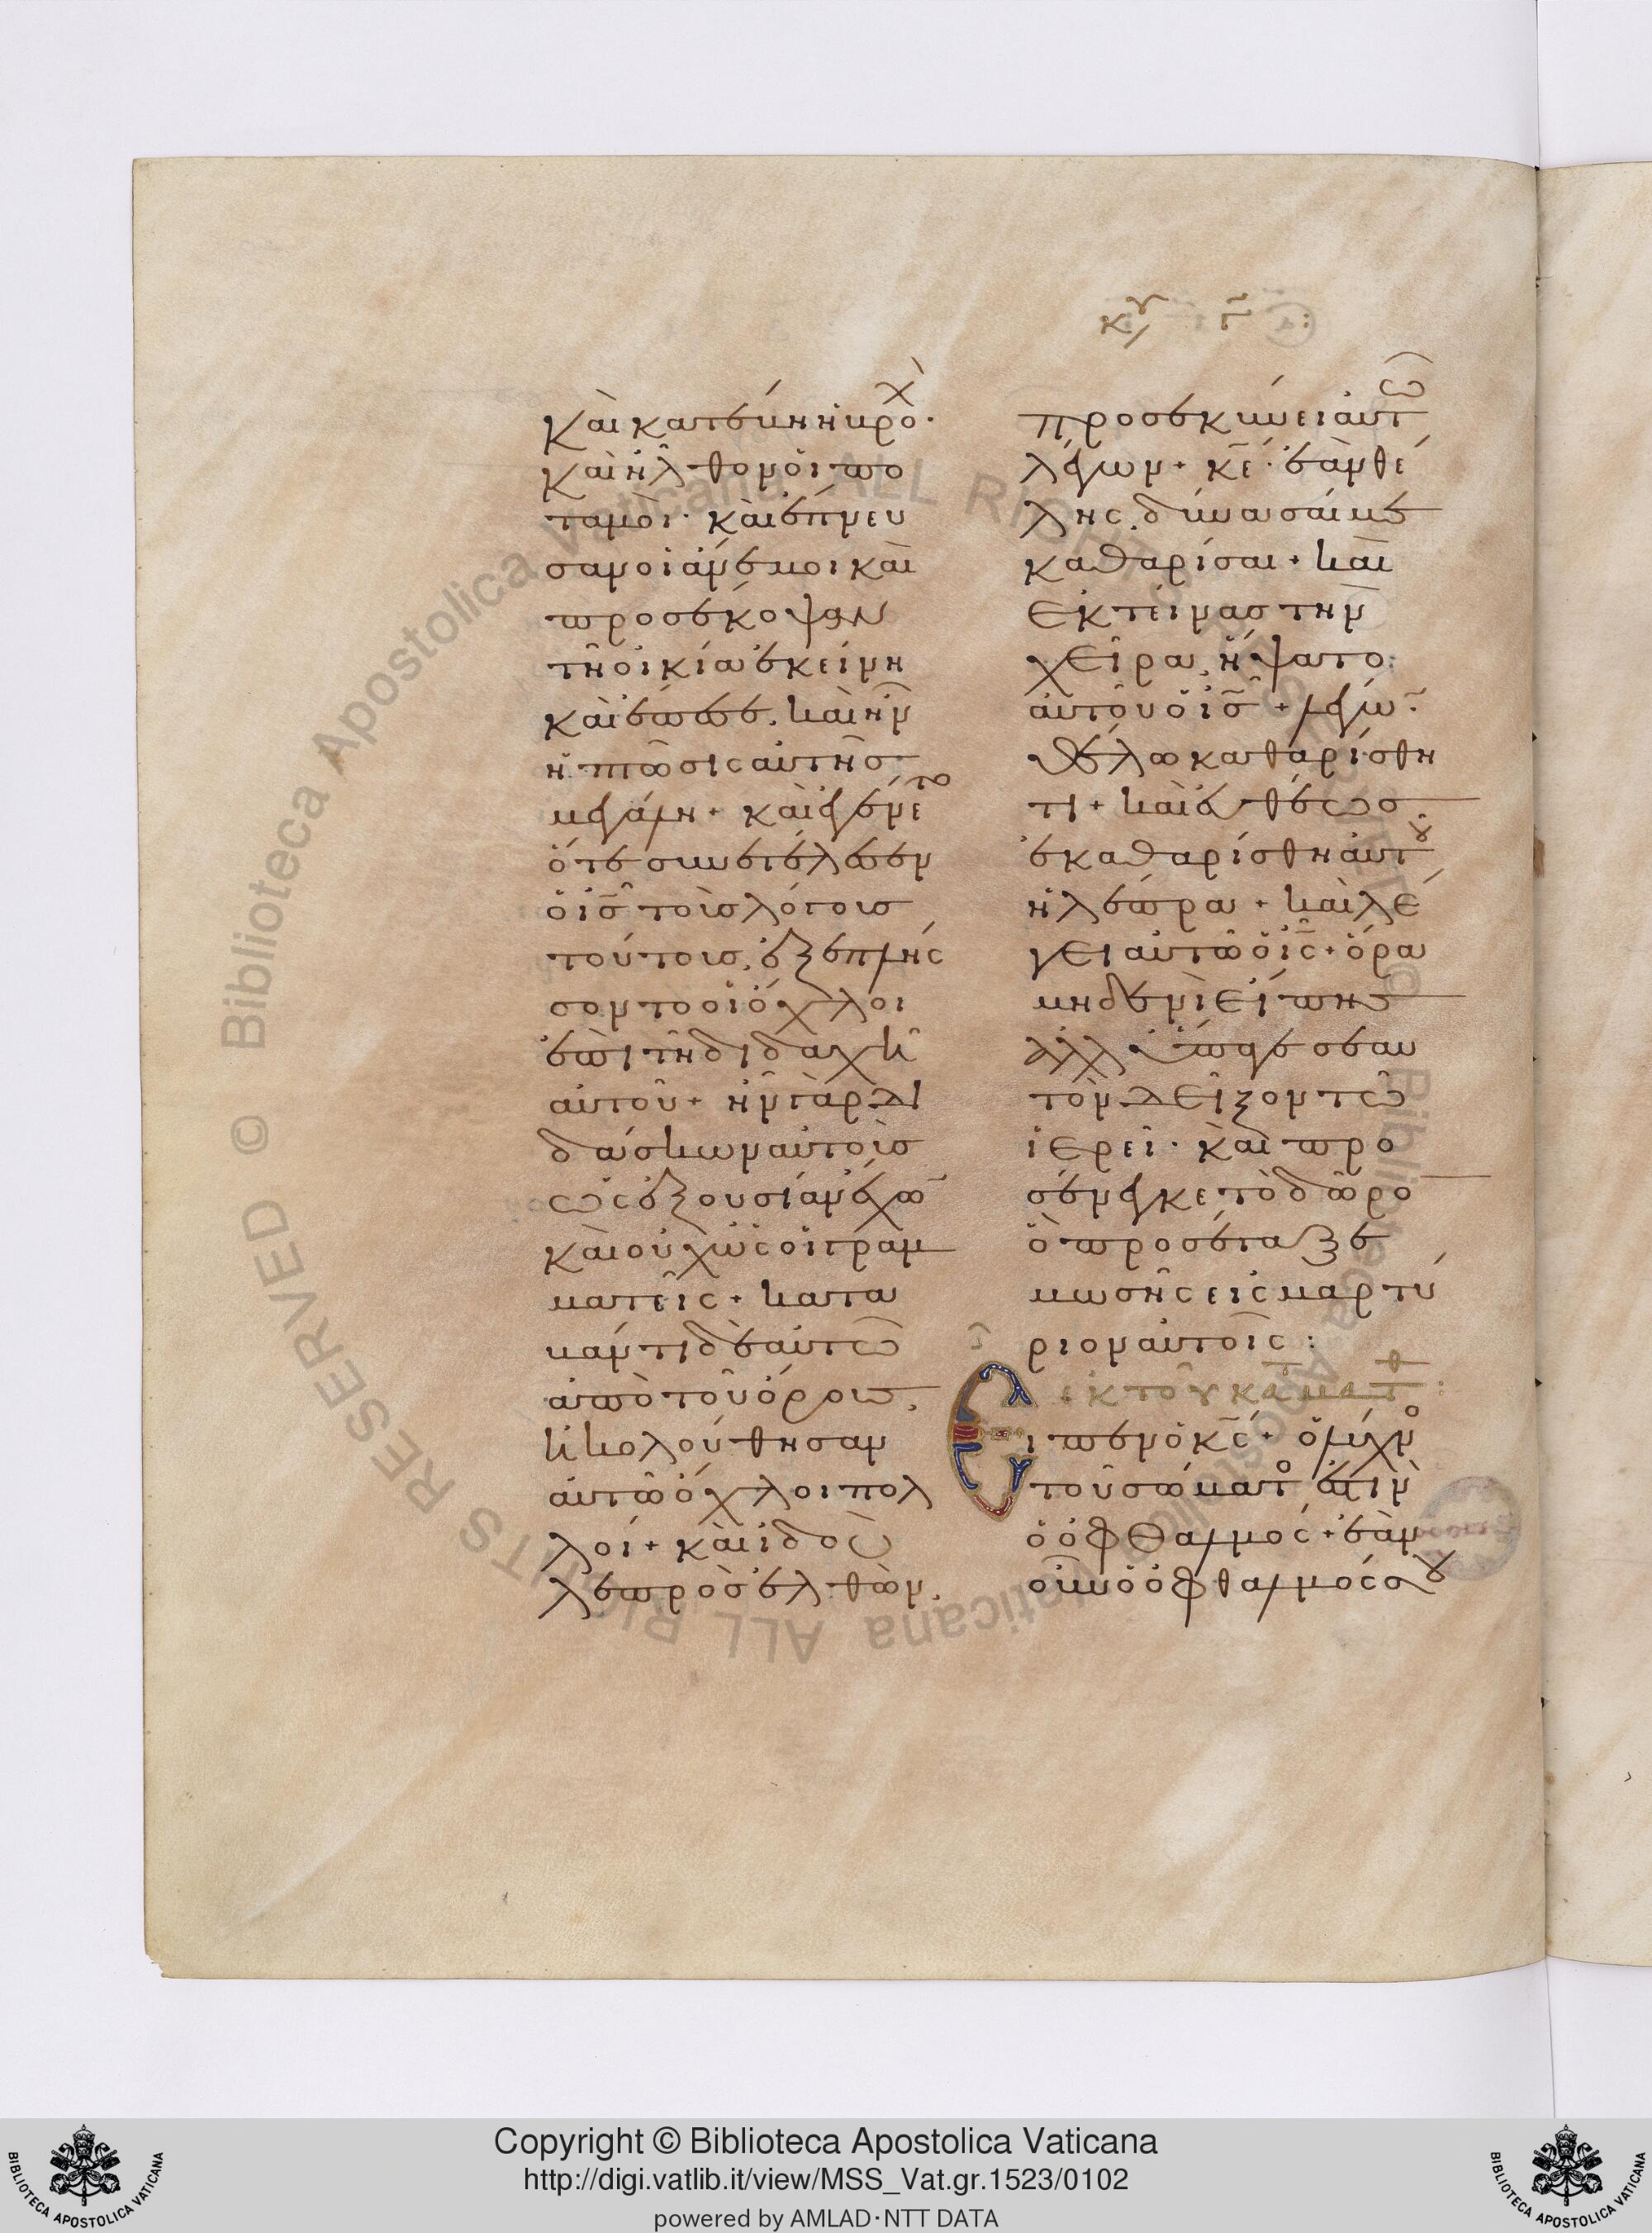 κυ γ :
καὶ κατέβη ἡ βροχὴ·
καὶ ἦλθον οἱ πο
ταμοὶ· καὶ ἔπνευ
σαν οἱ ἄνεμοι καὶ
προσέκοψαν
τῆ οἰκία ἐκείνη
καὶ ἔπεσε. καὶ ἦν
ἡ πτῶσις αὐτῆς
μεγάλη + καὶ ἐγένετο
ὅτε συνετέλεσεν
ὁ ι̅ς̅ τοὺς λόγους
τούτους, ἐξεπλήσ
σοντο οἱ ὄχλοι
ἐπὶ τῆ διδαχῆ
αὐτοῦ + ἦν γὰρ δι
δάσκων αὐτοὺς
ὡς ἐξουσίαν ἔχων
καὶ οὐχ ὡς οἱ γραμ
ματεῖς + κατα
βάντι δὲ αὐτῶ
ἀπὸ τοῦ ὄρους,
ἠκολούθησαν
αὐτῶ ὄχλοι πολ
λοί + καὶ ἰδοὺ
λεπρὸς ἐλθὼν,
προσεκύνει αὐτῶ
λέγων + κ̅ε̅· ἐὰν θέ
λης, δύνασαί με
καθαρίσαι + καὶ
ἐκτείνας τὴν
χεῖρα, ἥψατο
αὐτοῦ ὁ ι̅ς̅ + λέγω̅·
θέλω καθαρίσθη
τι + καὶ εὐθέως
ἐκαθαρίσθη αὐτοῦ
ἡ λέπρα + καὶ λέ
γει αὐτῶ ὁ ι̅ς̅ + ὅρα
μηδενὶ εἴπης
ἀλλ' ὕπαγε σεαυ
τὸν δεῖξον τῶ
ἱερεῖ· καὶ προ
σένεγκε τὸ δῶρο̅
ὃ προσέταξε
μωσῆς εἰς μαρτύ
ριον αὐτοῖς :
ἐκ τοῦ κατὰ ματθ :
Εἶπεν ὁ κ̅ς̅ + ὁ λύχνο
τοῦ σώματο ἐστὶν
ὁ ὀφθαλμός + ἐὰν
οὖν ὁ ὀφθαλμός σου
Copyright © Biblioteca Apostolica Vaticana
http://digi.vatlib.it/view/MSS_Vat.gr.1523/0102
powered by AMLAD·NTT DATA